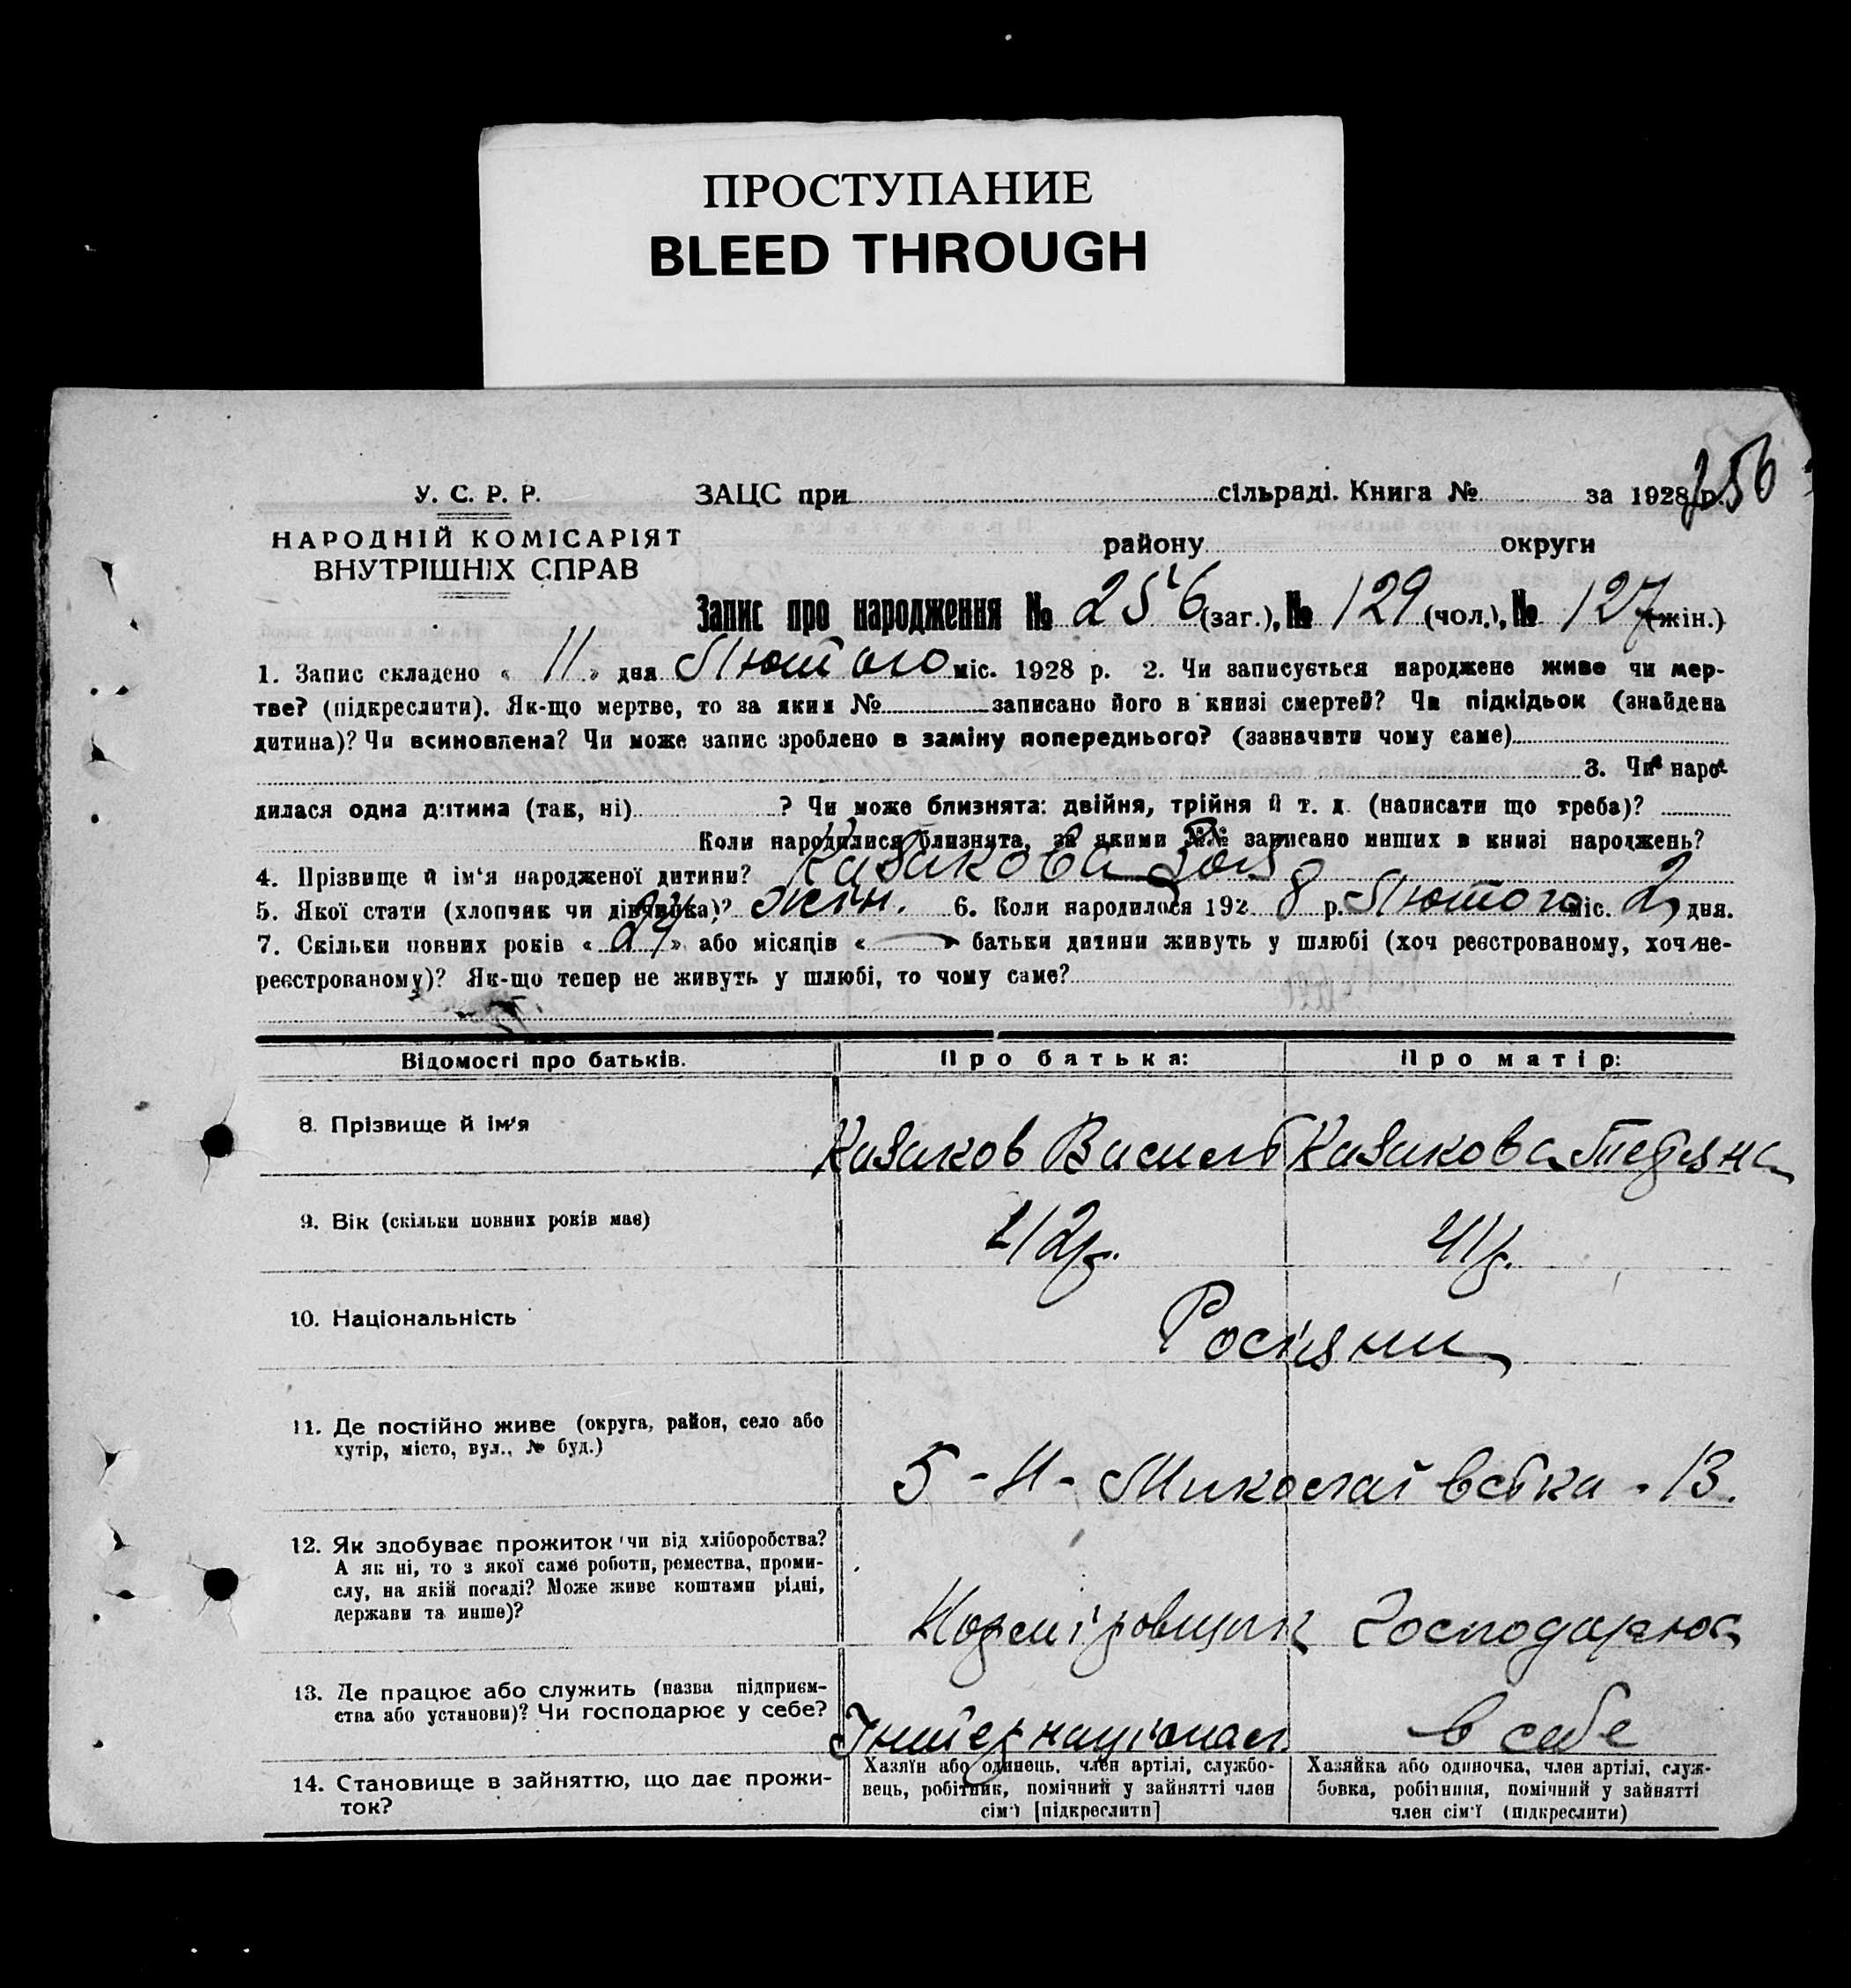 ПРОСТУПАНИЕ
BLEED THROUGH
256
У. С. Р. Р. ЗАЦС при сільраді. Книга № за 1928 р.
НАРОДНІЙ КОМІСАРІЯТ району округи
ВНУТРІШНІХ СПРАВ
Запис про народження № 256 (заг.), № 129 (чол.), № 127 (жін.)
1. Запис складено « 11 » дня Лютого міс. 1928 р. 2. Чи записується народжене живе чи мер-
тве? (підкреслити). Як-що мертве, то за яким № записано його в книзі смертей? Чи підкідьок (знайдена
дитина)? Чи всиновлена? Чи може запис зроблено в заміну попереднього? (зазначити чому саме)
3. Чи наро-
дилася одна дитина (так, ні) ? Чи може близнята: двійня, трійня й т. д. (написати що треба)?
Коли народилися близнята, за якими №№ записано инших в книзі народжень?
4. Прізвище й ім‘я народженої дитини? Казакова Зоя
5. Якої стати (хлопчик чи дівчинка)? жін. 6. Коли народилося 192 8 р. Лютого міс. 2 дня.
7. Скільки повних років « 24 » або місяців « — » батьки дитини живуть у шлюбі (хоч реєстрованому, хоч не-
реєстрованому)? Як-що тепер не живуть у шлюбі, то чому саме?
Відомості про батьків. Про батька: Про матір:
8. Прізвище й ім‘я Казаков Василь Казакова Тетяна
9. Вік (скільки повних років має) 42р. 41р.
10. Національність Росіяни
11. Де постійно живе (округа, район, село або
хутір, місто, вул., № буд.) 5 - Н - Миколаївська - 13.
12. Як здобуває прожиток чи від хліборобства?
А як ні, то з якої саме роботи, ремества, проми-
слу, на якій посаді? Може живе коштами рідні,
держави та инше)? Норміровщик Господарює
13. Де працює або служить (назва підприєм-
ства або установи)? Чи господарює у себе? Інтернаціонал. в себе
14. Становище в зайняттю, що дає прожи-
ток?
Хазяїн або одинець, член артілі, службо-
вець, робітник, помічний у зайнятті член
сім‘ї [підкреслити]
Хазяйка або одиночка, член артілі, служ-
бовка, робітниця, помічний у зайнятті
член сім‘ї (підкреслити)